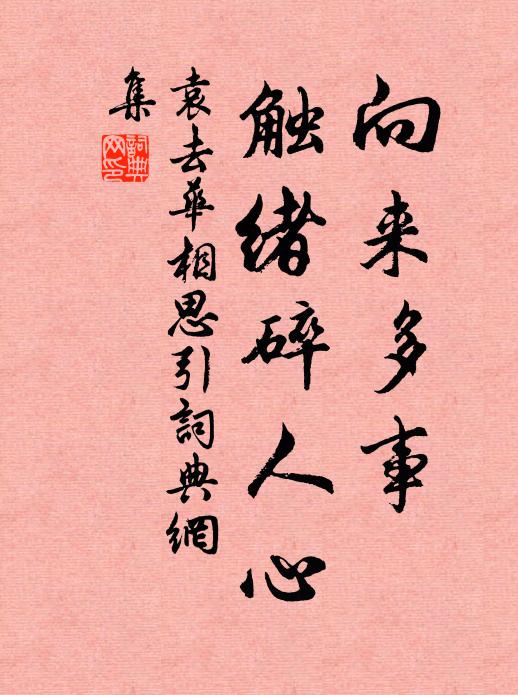 向来多事
触绪碎人心
袁去華相思引詞典網
集
詞典网印